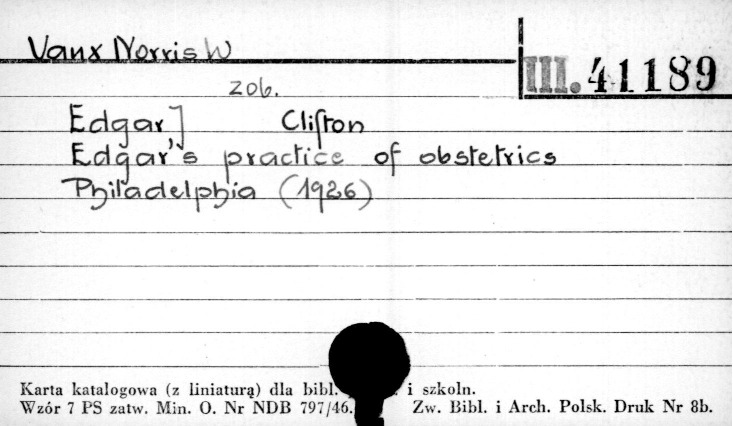 Vaux Norris W
III. 41189
zob.
Edgar] Clifton
Edgar's practice of obstetrics
Philadelphia (1926)
Karta katalogowa (z liniaturą) dla bibl. i szkoln.
Wzór 7 PS zatw. Min. O. Nr NDB 797/46. Zw. Bibl. i Arch. Polsk. Druk Nr 8b.